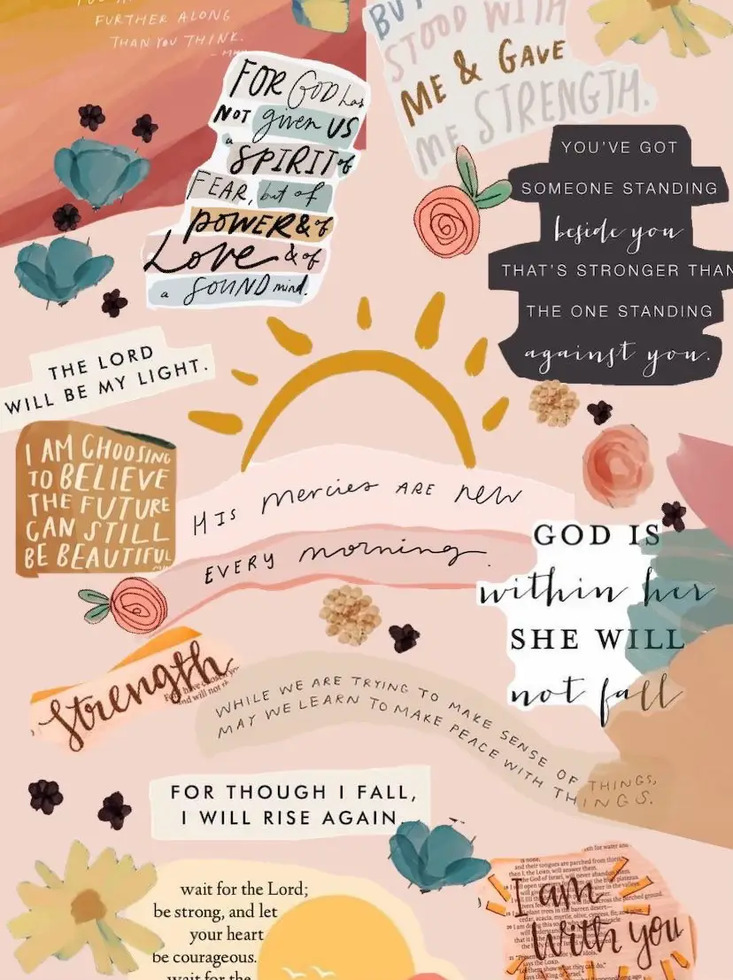 FURTHER ALONG
THAN YOU THINK.
STOOD WITH
ME & GAVE
ME STRENGTH.
FOR GOD has
NOT given US
a SPIRIT of
FEAR, but of
POWER & of
Love & of
a SOUND mind.
YOU'VE GOT
SOMEONE STANDING
beside you
THAT'S STRONGER THAN
THE ONE STANDING
against you.
THE LORD
WILL BE MY LIGHT.
I AM CHOOSING
TO BELIEVE
THE FUTURE
CAN STILL
BE BEAUTIFUL
HIS mercies ARE new
EVERY morning.
GOD IS
within her
SHE WILL
not fall
strength
WHILE WE ARE TRYING TO MAKE SENSE OF THINGS,
MAY WE LEARN TO MAKE PEACE WITH THINGS.
FOR THOUGH I FALL,
I WILL RISE AGAIN.
wait for the Lord;
be strong, and let
your heart
be courageous.
wait for the
I am
with you